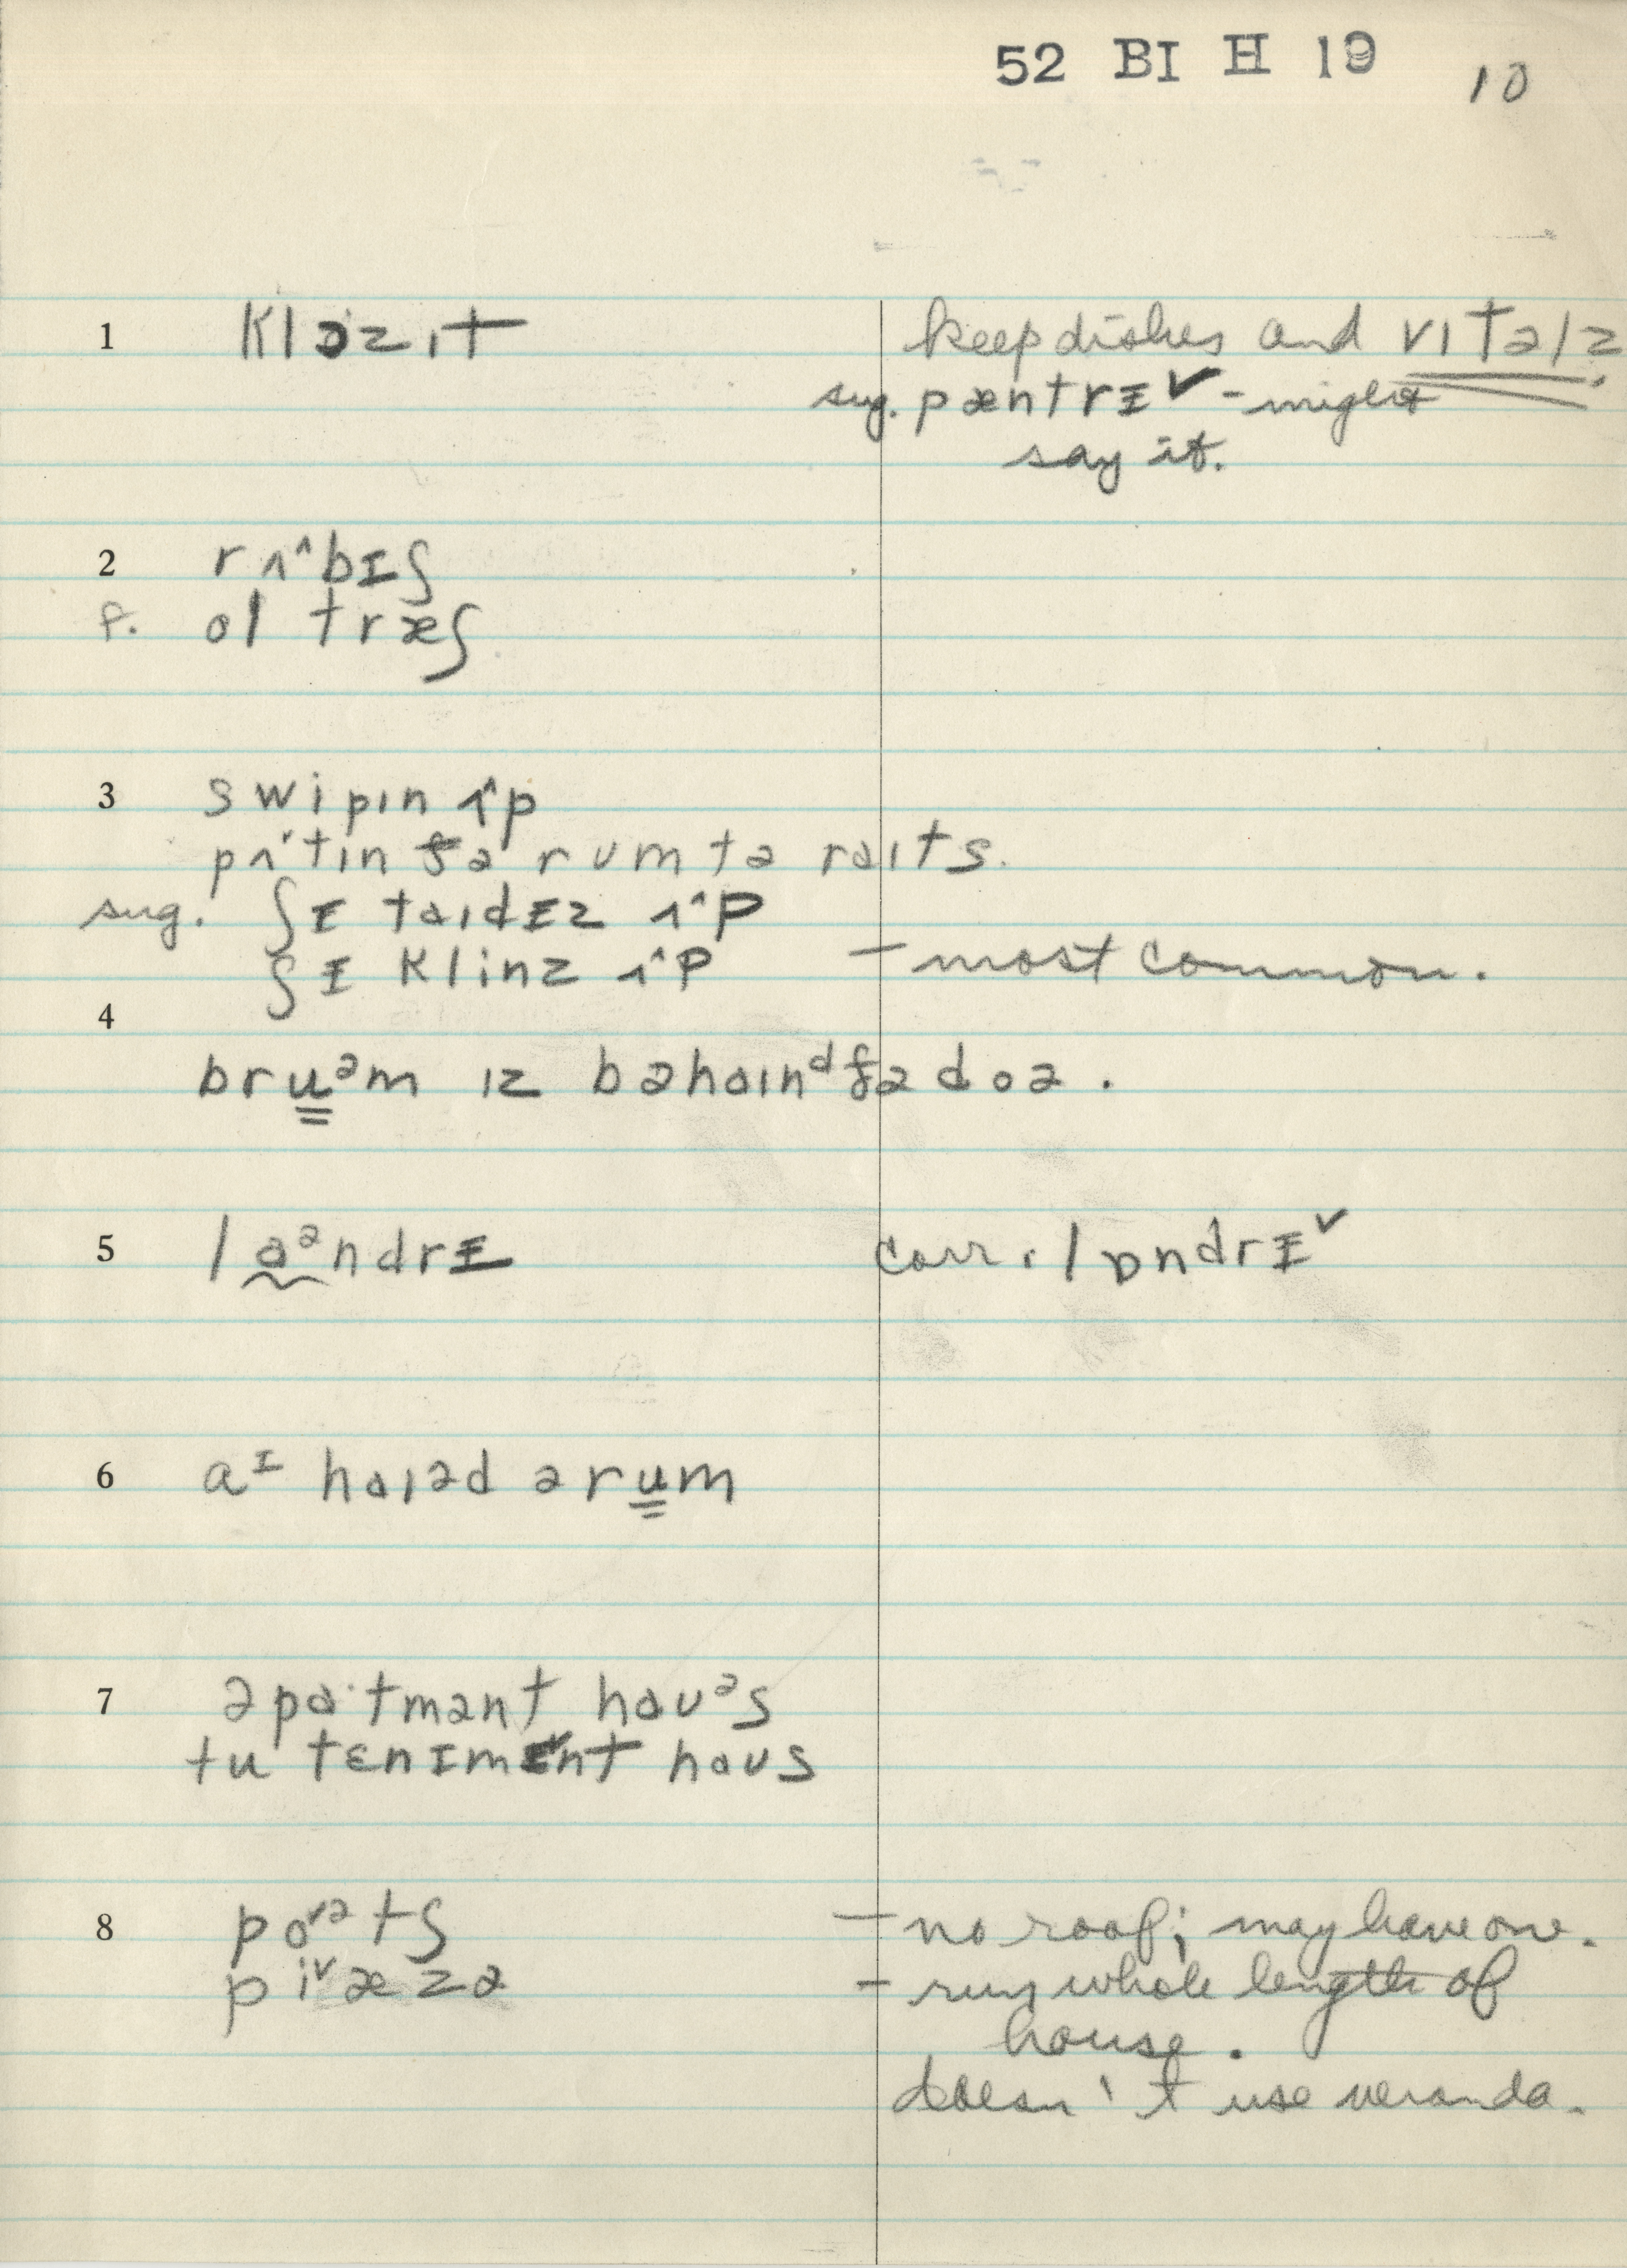 52 BI H 19 10
1 klɔzɪt keep dishes and vɪtəlz.
sug. pæntrɪ˅ - might
say it.
2 rʌ^bɪʃ
f. ol træʃ
3 swipɪn ʌ^p
pʌ'tɪn ðə rum tə raɪts.
sug. ʃɪ taɪdɪz ʌ^p
ʃɪ klinz ʌ^p - most common.
4
bruᵊm ɪz bəhaɪnᵈ ðə doə.
5 laᵊndrɪ corr. lɒndrɪ˅
6 aᴵ haɪəd ə rum
7 əpa·tmənt haʊᵊs
tu tɛnɪmɪ˅nt haʊs
8 po˅ᵊtʃ - no roof; may have one.
pi˅æzə - runs whole length of
house.
doesn't use veranda.